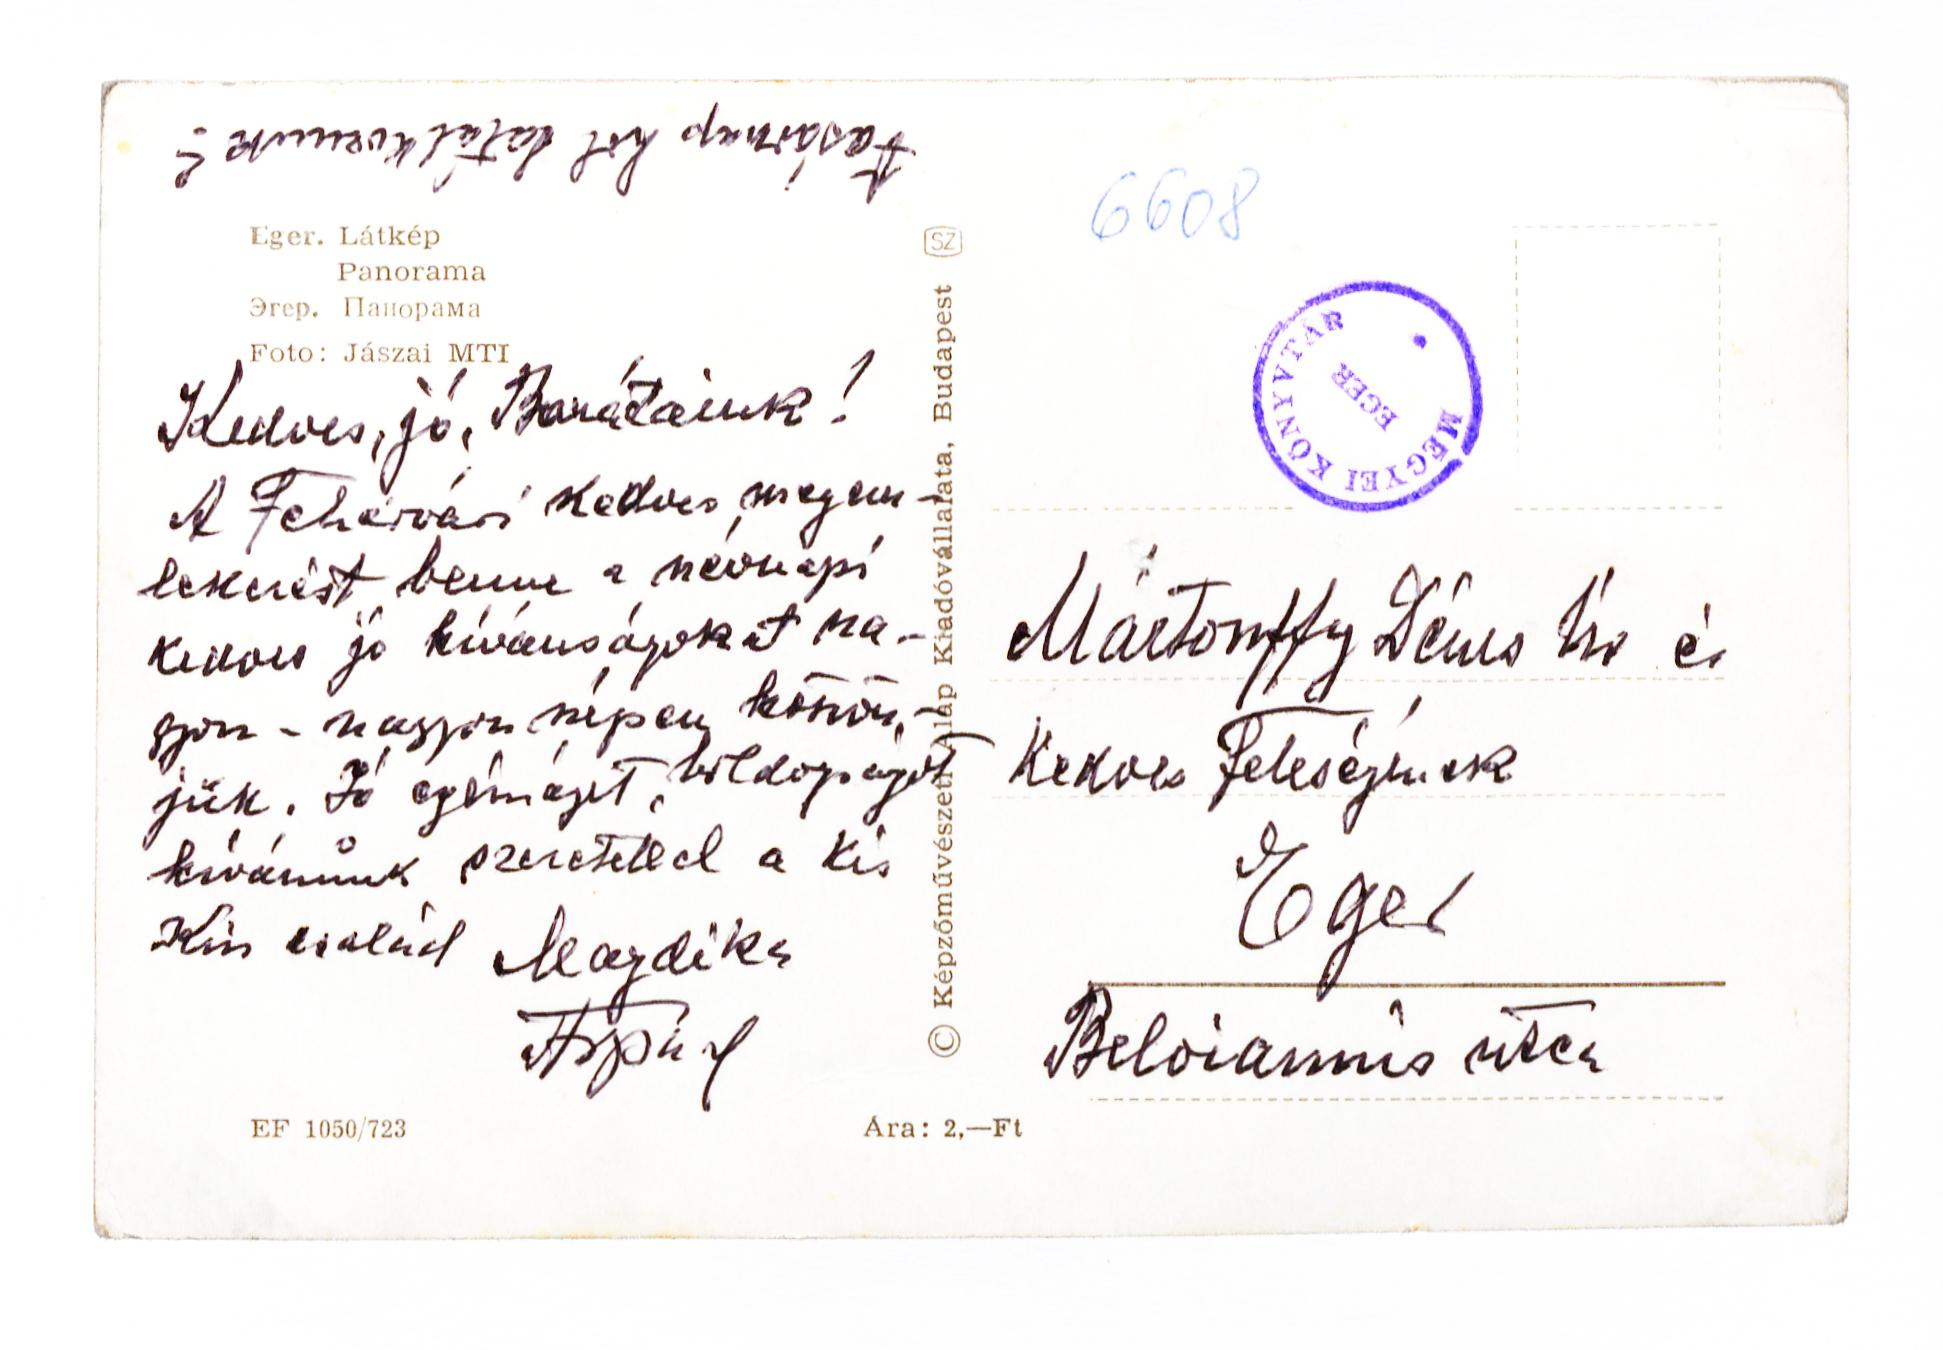 Vasárnap hol találkozunk?
Eger. Látkép
Panorama
Эгер. Панорама
Foto: Jászai MTI
Kedves, jó, Barátaink!
A Fehérvári kedves megem-
lekezést benne a névnapi
kedves jó kívánságokat na-
gyon - nagyon szépen köszön-
jük. Jó egészséget, boldogságot
kívánunk szeretettel a kis
Kiss család Magdika
Árpád
EF 1050/723
Ára: 2,—Ft
© Képzőművészeti Alap Kiadóvállalata, Budapest SZ
6608
MEGYEI KÖNYVTÁR
EGER
Mártonffy Dénes Úr és
kedves Feleségének
Eger
Beloiannis utca